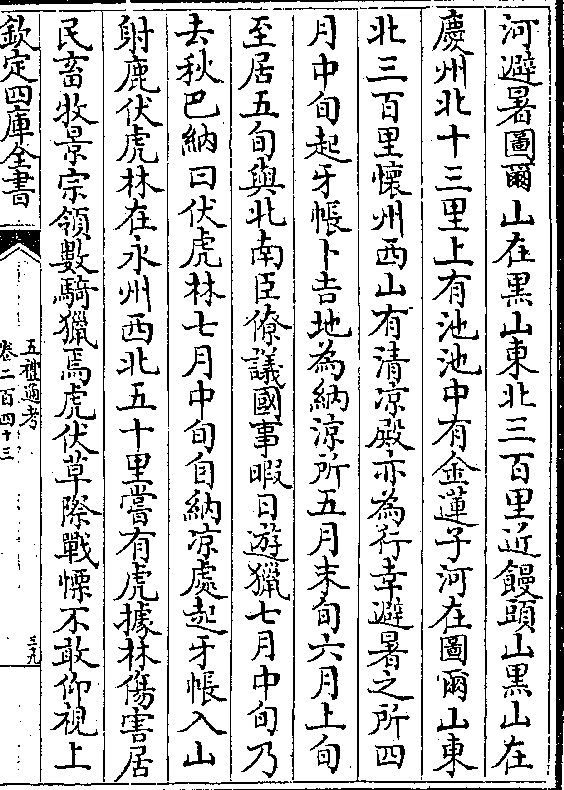 河避暑圖爾山在黒山東北三百里近饅頭山黒山在
慶州北十三里上有池池中有金蓮子河在圖爾山東
北三百里懷州西山有清凉殿亦為行幸避暑之所四
月中旬起牙帳卜吉地為納凉所五月末旬六月上旬
至居五旬與北南臣僚議國事暇日遊獵七月中旬乃
去秋巴納曰伏虎林七月中旬自納凉處起牙帳入山
射鹿伏虎林在永州西北五十里嘗有虎據林傷害居
民畜牧景宗領數騎獵焉虎伏草際戰慄不敢仰視上
欽定四庫全書
五禮通考
卷二百四十三
三九